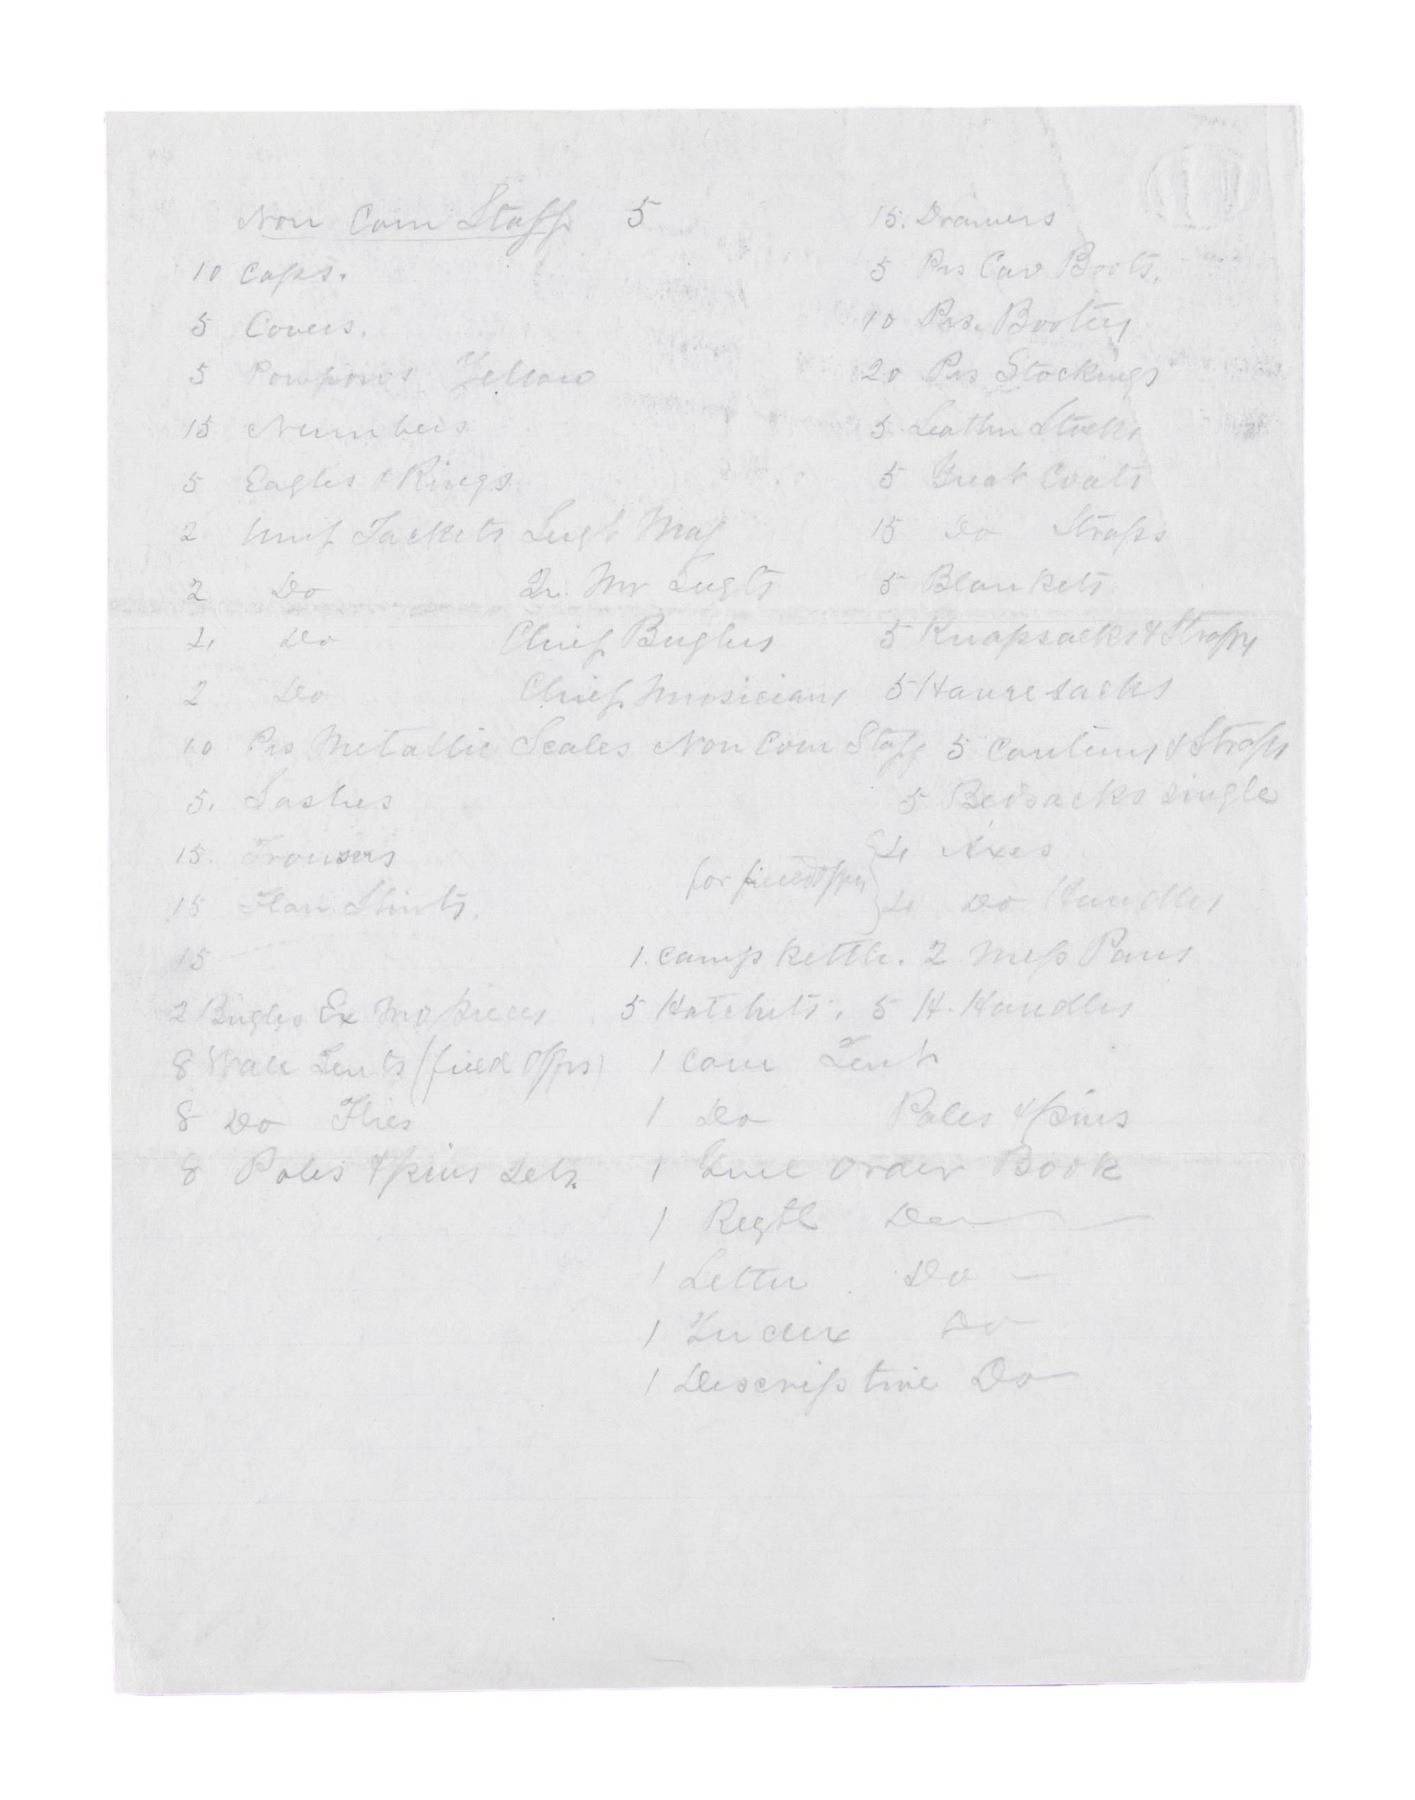 Non Com Staff 5
10 Caps.
5 Covers.
5 Pompons Yellow
15 Numbers
5 Eagles & Rings
2 Unif Jackets Sergt Maj
2 Do Qr. Mr Sergts
2 Do Chief Buglers
2 Do Chief Musicians
10 Prs Metallic Scales Non Com Staff
5. Sashes
15. Trousers
15 Flan Shirts.
15
2 Bugles Ex Mo pieces
8 Wall Tents (field Offrs)
8 Do Flies
8 Poles & pins sets.
15. Drawers
5 Prs Cav Boots.
10 Prs. Bootees
20 Prs Stockings
5 Leather Stocks
5 Great Coats
15 Do Straps
5 Blankets
5 Knapsacks & Straps
5 Haversacks
5 Canteens & Straps
5 Bedsacks single
for field Offrs
4 Axes
4 Do Handles
1. Camp Kettle. 2 Mess Pans
5 Hatchets. 5 H. Handles
1 Com Tent
1 Do Poles & pins
1 Genl Order Book
1 Regtl Do
1 Letter Do
1 Index Do
1 Descriptive Do